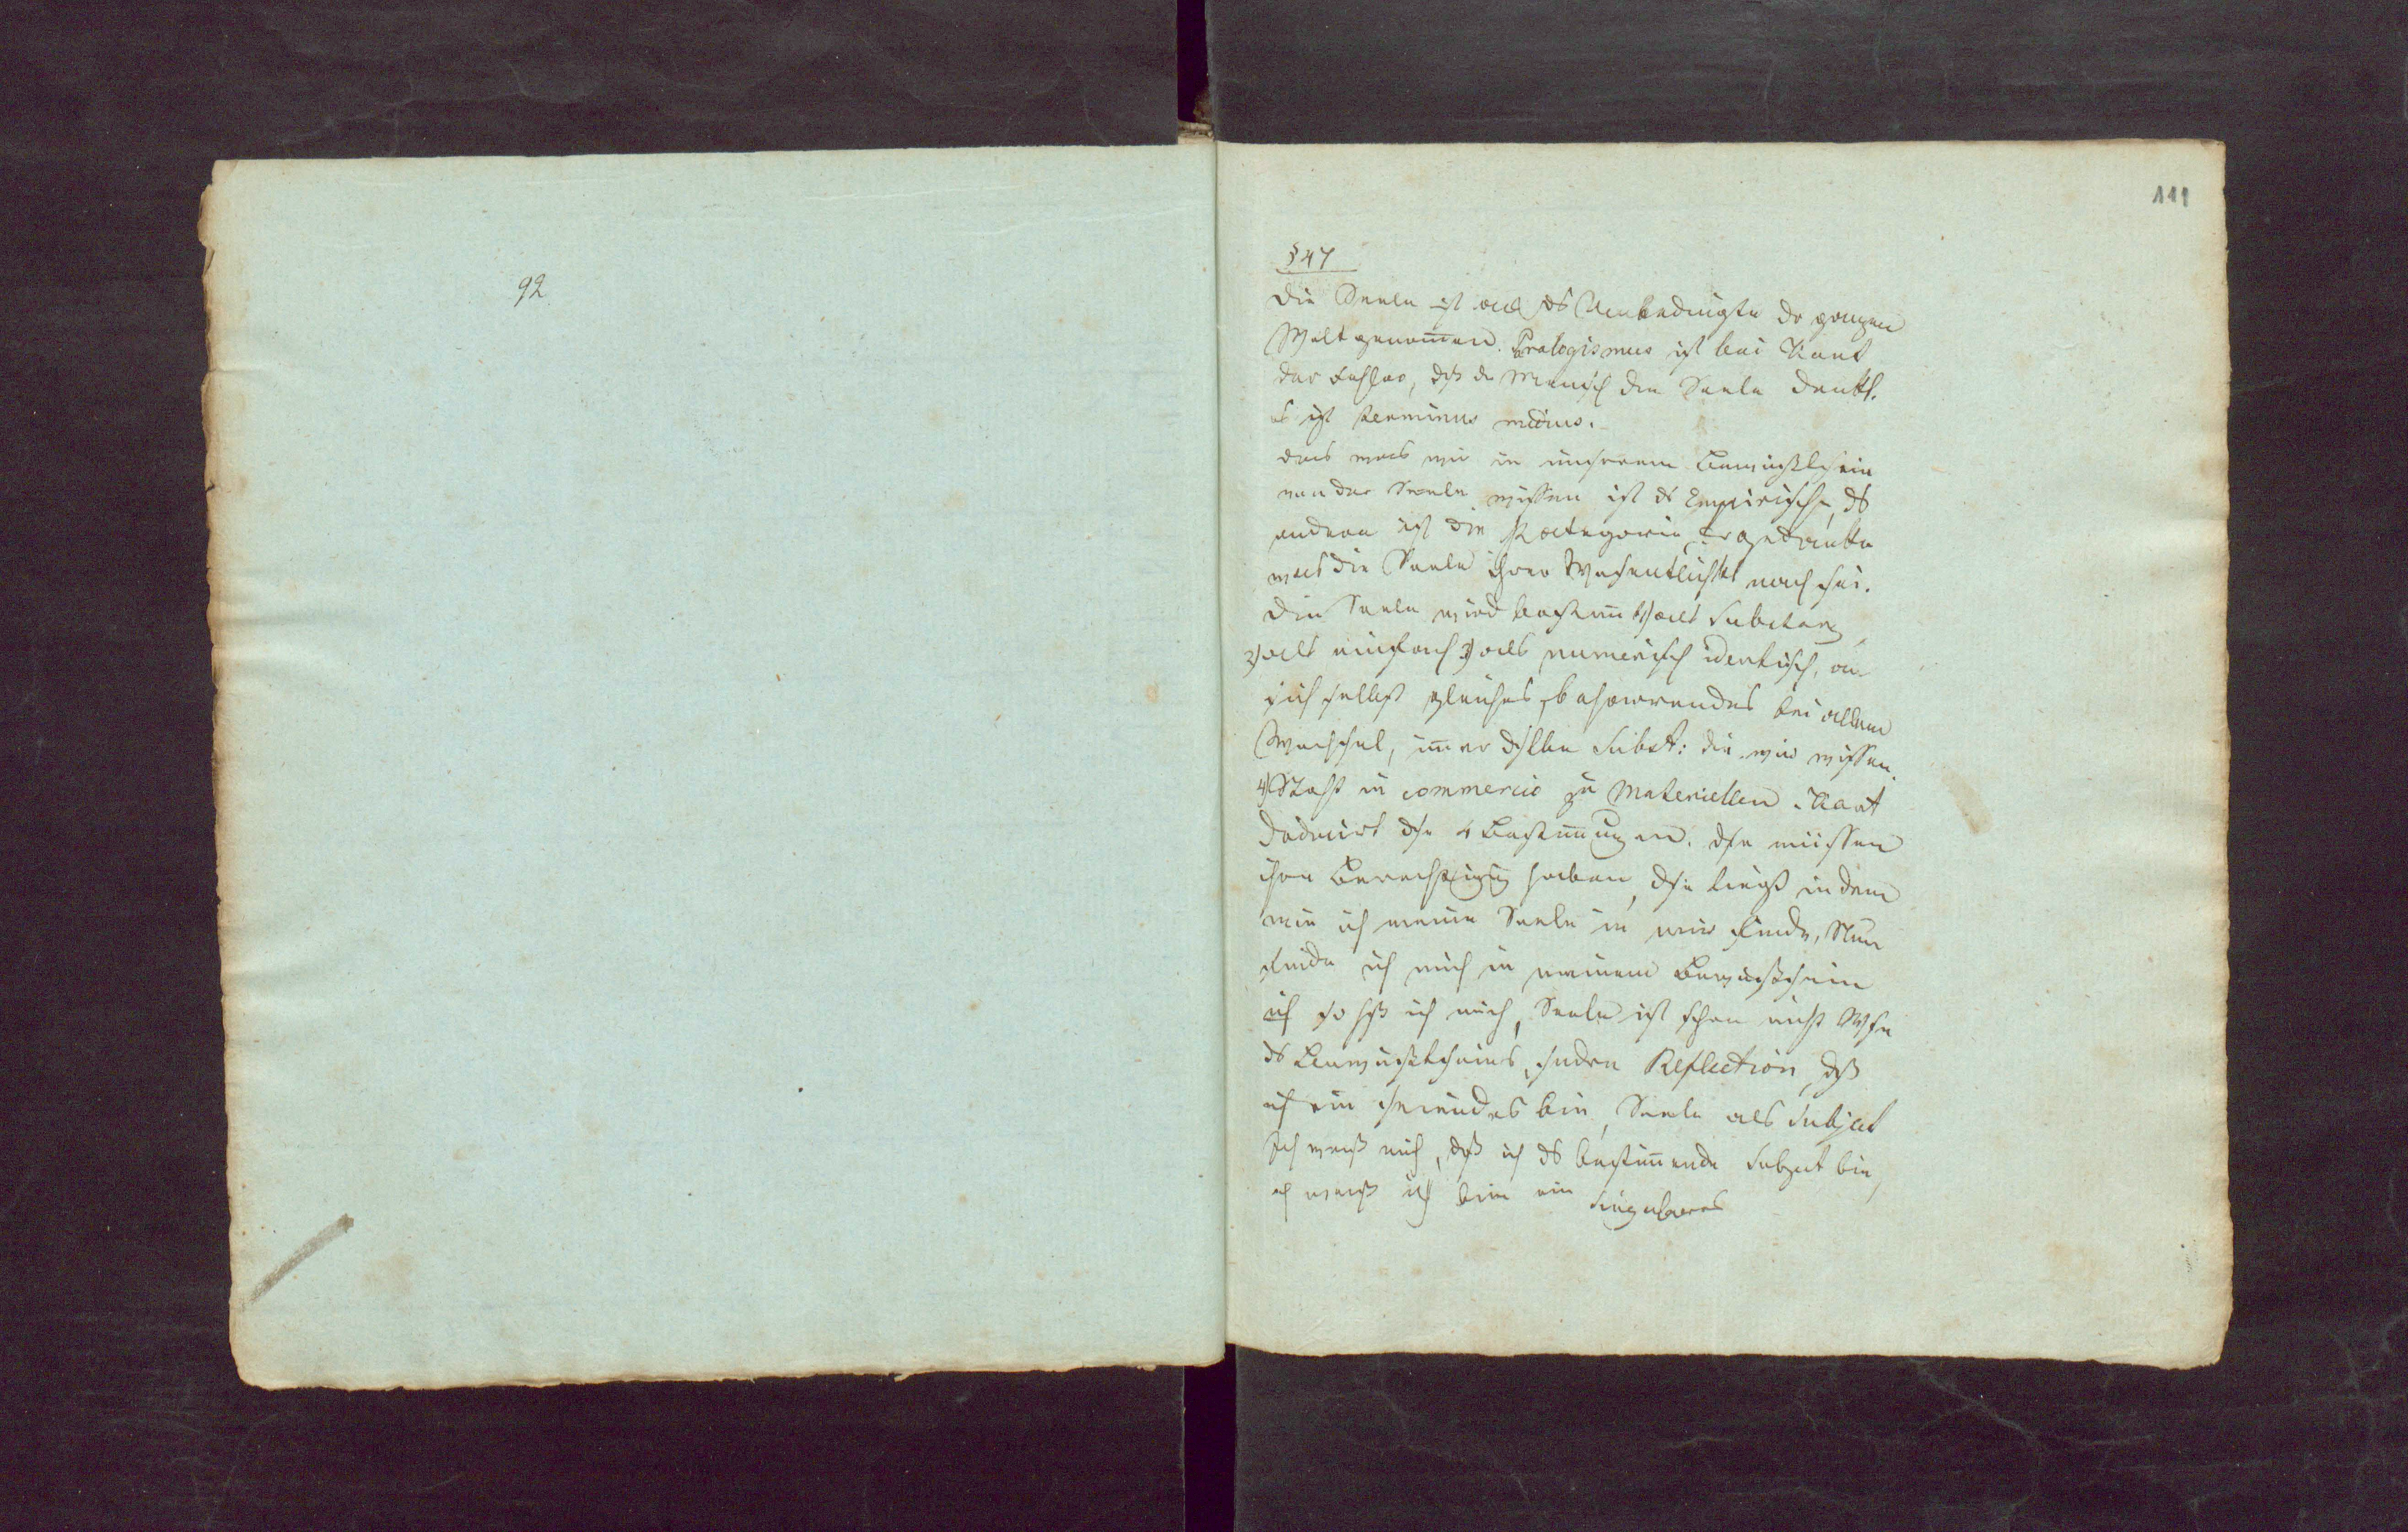 92
111
§ 47
Die Seele ist als ds Unbedingte dr ganzen
Welt genom̅en. Paralogismus ist bei Kant
der Fehler, dß dr Mensch die Seele denkt.
Es ist terminus medius.
das was wir in unserem Bewußtsein
von der Seele wissen ist ds Empirische, ds
andere ist die Kategorie, der Gedanke
was die Seele ihrer Wesentlichkt nach sei.
Die Seele wird bestim̅t 1) als Substanz,
2) als einfach 3) als numerisch identisch, an
sich selbst gleiches, beharrendes bei allem
Wechsel, im̅er dslbe Subst: die wir wissen.
4) Steht in commercio zu Materiellen. Kant
deducirt dse 4 Bestim̅ungen. dse müssen
ihre Berechtigung haben, dse liegt in dem
wie ich meine Seele in mir finde, Nun
finde ich mich in meinem Bewußtsein
ich ich mich, Seele ist schon nicht
ds Bewußtseins, sndrn Reflection, dß
ich ein seiendes bin, Seele als Subject
Ich weiß mich, dß ich ds bestim̅ende Subject bin,
ich weiß ich bin ein Singuläres